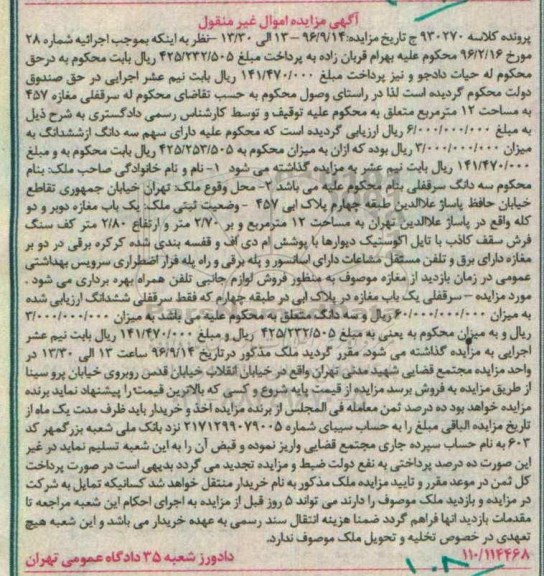 آگهی مزایده اموال غیر منقول
پرونده کلاسه ۹۳۰۲۷۰ ج تاریخ مزایده:۹۶/۹/۱۴ –۱۳ الی ۱۳/۳۰ -نظر به اینکه بموجب اجرائیه شماره ۲۸
مورخ ۹۶/۲/۱۶ محکوم علیه بهرام قربان زاده به پرداخت مبلغ ۴۲۵/۲۳۲/۵۰۵ ریال بابت محکوم به درحق
محکوم له حیات دادجو و نیز پرداخت مبلغ ۱۴۱/۴۷۰/۰۰۰ ریال بابت نیم عشر اجرایی در حق صندوق
دولت محکوم گردیده است لذا در راستای وصول محکوم به حسب تقاضای محکوم له سرقفلی مغازه ۴۵۷
به مساحت ۱۲ مترمربع متعلق به محکوم علیه توقیف و توسط کارشناس رسمی دادگستری به شرح ذیل
به مبلغ ۶/۰۰۰/۰۰۰/۰۰۰ ریال ارزیابی گردیده است که محکوم علیه دارای سهم سه دانگ ازششدانگ به
میزان ۳/۰۰۰/۰۰۰/۰۰۰ ریال بوده که ازان به میزان محکوم به ۴۲۵/۲۵۳/۵۰۵ ریال بابت محکوم به و مبلغ
۱۴۱/۴۷۰/۰۰۰ ریال بابت نیم عشر به مزایده گذاشته می شود ۱-نام و نام خانوادگی صاحب ملک: بنام
محکوم سه دانگ سرقفلی بنام محکوم علیه می باشد ۲- محل وقوع ملک: تهران خیابان جمهوری تقاطع
خیابان حافظ پاساژ علاالدین طبقه چهارم پلاک ابی ۴۵۷ - وضعیت ثبتی ملک: یک باب مغازه دوبر و دو
کله واقع در پاساژ علاالدین تهران به مساحت ۱۲ مترمربع و بر ۲/۷۰ متر و ارتفاع ۲/۸۰ متر کف سنگ
فرش سقف کاذب با تایل اکوستیک دیوارها با پوشش ام دی اف و قفسه بندی شده کرکره برقی در دو بر
مغازه دارای برق و تلفن مستقل مشاعات دارای اسانسور و پله برقی و راه پله فرار اضطراری سرویس بهداشتی
عمومی در زمان بازدید از مغازه موصوف به منظور فروش لوازم جانبی تلفن همراه بهره برداری می شود .
مورد مزایده – سرقفلی یک باب مغازه در پلاک ابی در طبقه چهارم که فقط سرقفلی ششدانگ ارزیابی شده
به میزان ۶۰/۰۰۰/۰۰۰/۰۰۰ ریال و سه دانگ متعلق به محکوم علیه می باشد به میزان ۳/۰۰۰/۰۰۰/۰۰۰
ریال و به میزان محکوم به یعنی به مبلغ ۴۲۵/۲۳۲/۵۰۵ ریال و مبلغ ۱۴۱/۴۷۰/۰۰۰ ریال بابت نیم عشر
اجرایی به مزایده گذاشته می شود. مقرر گردید ملک مذکور در تاریخ ۹۶/۹/۱۴ ساعت ۱۳ الی ۱۳/۳۰ در
واحد مزایده مجتمع قضایی شهید مدنی تهران واقع در خیابان انقلاب خیابان قدس روبروی خیابان پرو سینا
از طریق مزایده به فروش برسد مزایده از قیمت پایه شروع و کسی که بالاترین قیمت را پیشنهاد نماید برنده
مزایده خواهد بود ده درصد ثمن معامله فی المجلس از برنده مزایده اخذ و خریدار باید ظرف مدت یک ماه از
تاریخ مزایده الباقی مبلغ را به حساب سیبای شماره ۲۱۷۱۲۹۹۰۷۹۰۰۵ نزد بانک ملی شعبه بزرگمهر کد
۶۰۳ به نام حساب سپرده جاری مجتمع قضایی واریز نموده و قبض آن را به این شعبه تسلیم نماید در غیر
این صورت ده درصد پرداختی به نفع دولت ضبط و مزایده تجدید می گردد بدیهی است در صورت پرداخت
کل ثمن در موعد مقرر و تایید مزایده ملک مذکور به نام خریدار منتقل خواهد شد کسانیکه تمایل به شرکت
در مزایده و بازدید ملک موصوف را دارند می تواند ۵ روز قبل از مزایده به اجرای احکام این شعبه مراجعه تا
مقدمات بازدید انها فراهم گردد ضمنا هزینه انتقال سند رسمی به عهده خریدار می باشد و این شعبه هیچ
تعهدی در خصوص تخلیه و تحویل ملک موصوف ندارد.
۱۱۰/۱۱۴۴۶۸ دادورز شعبه ۳۵ دادگاه عمومی تهران